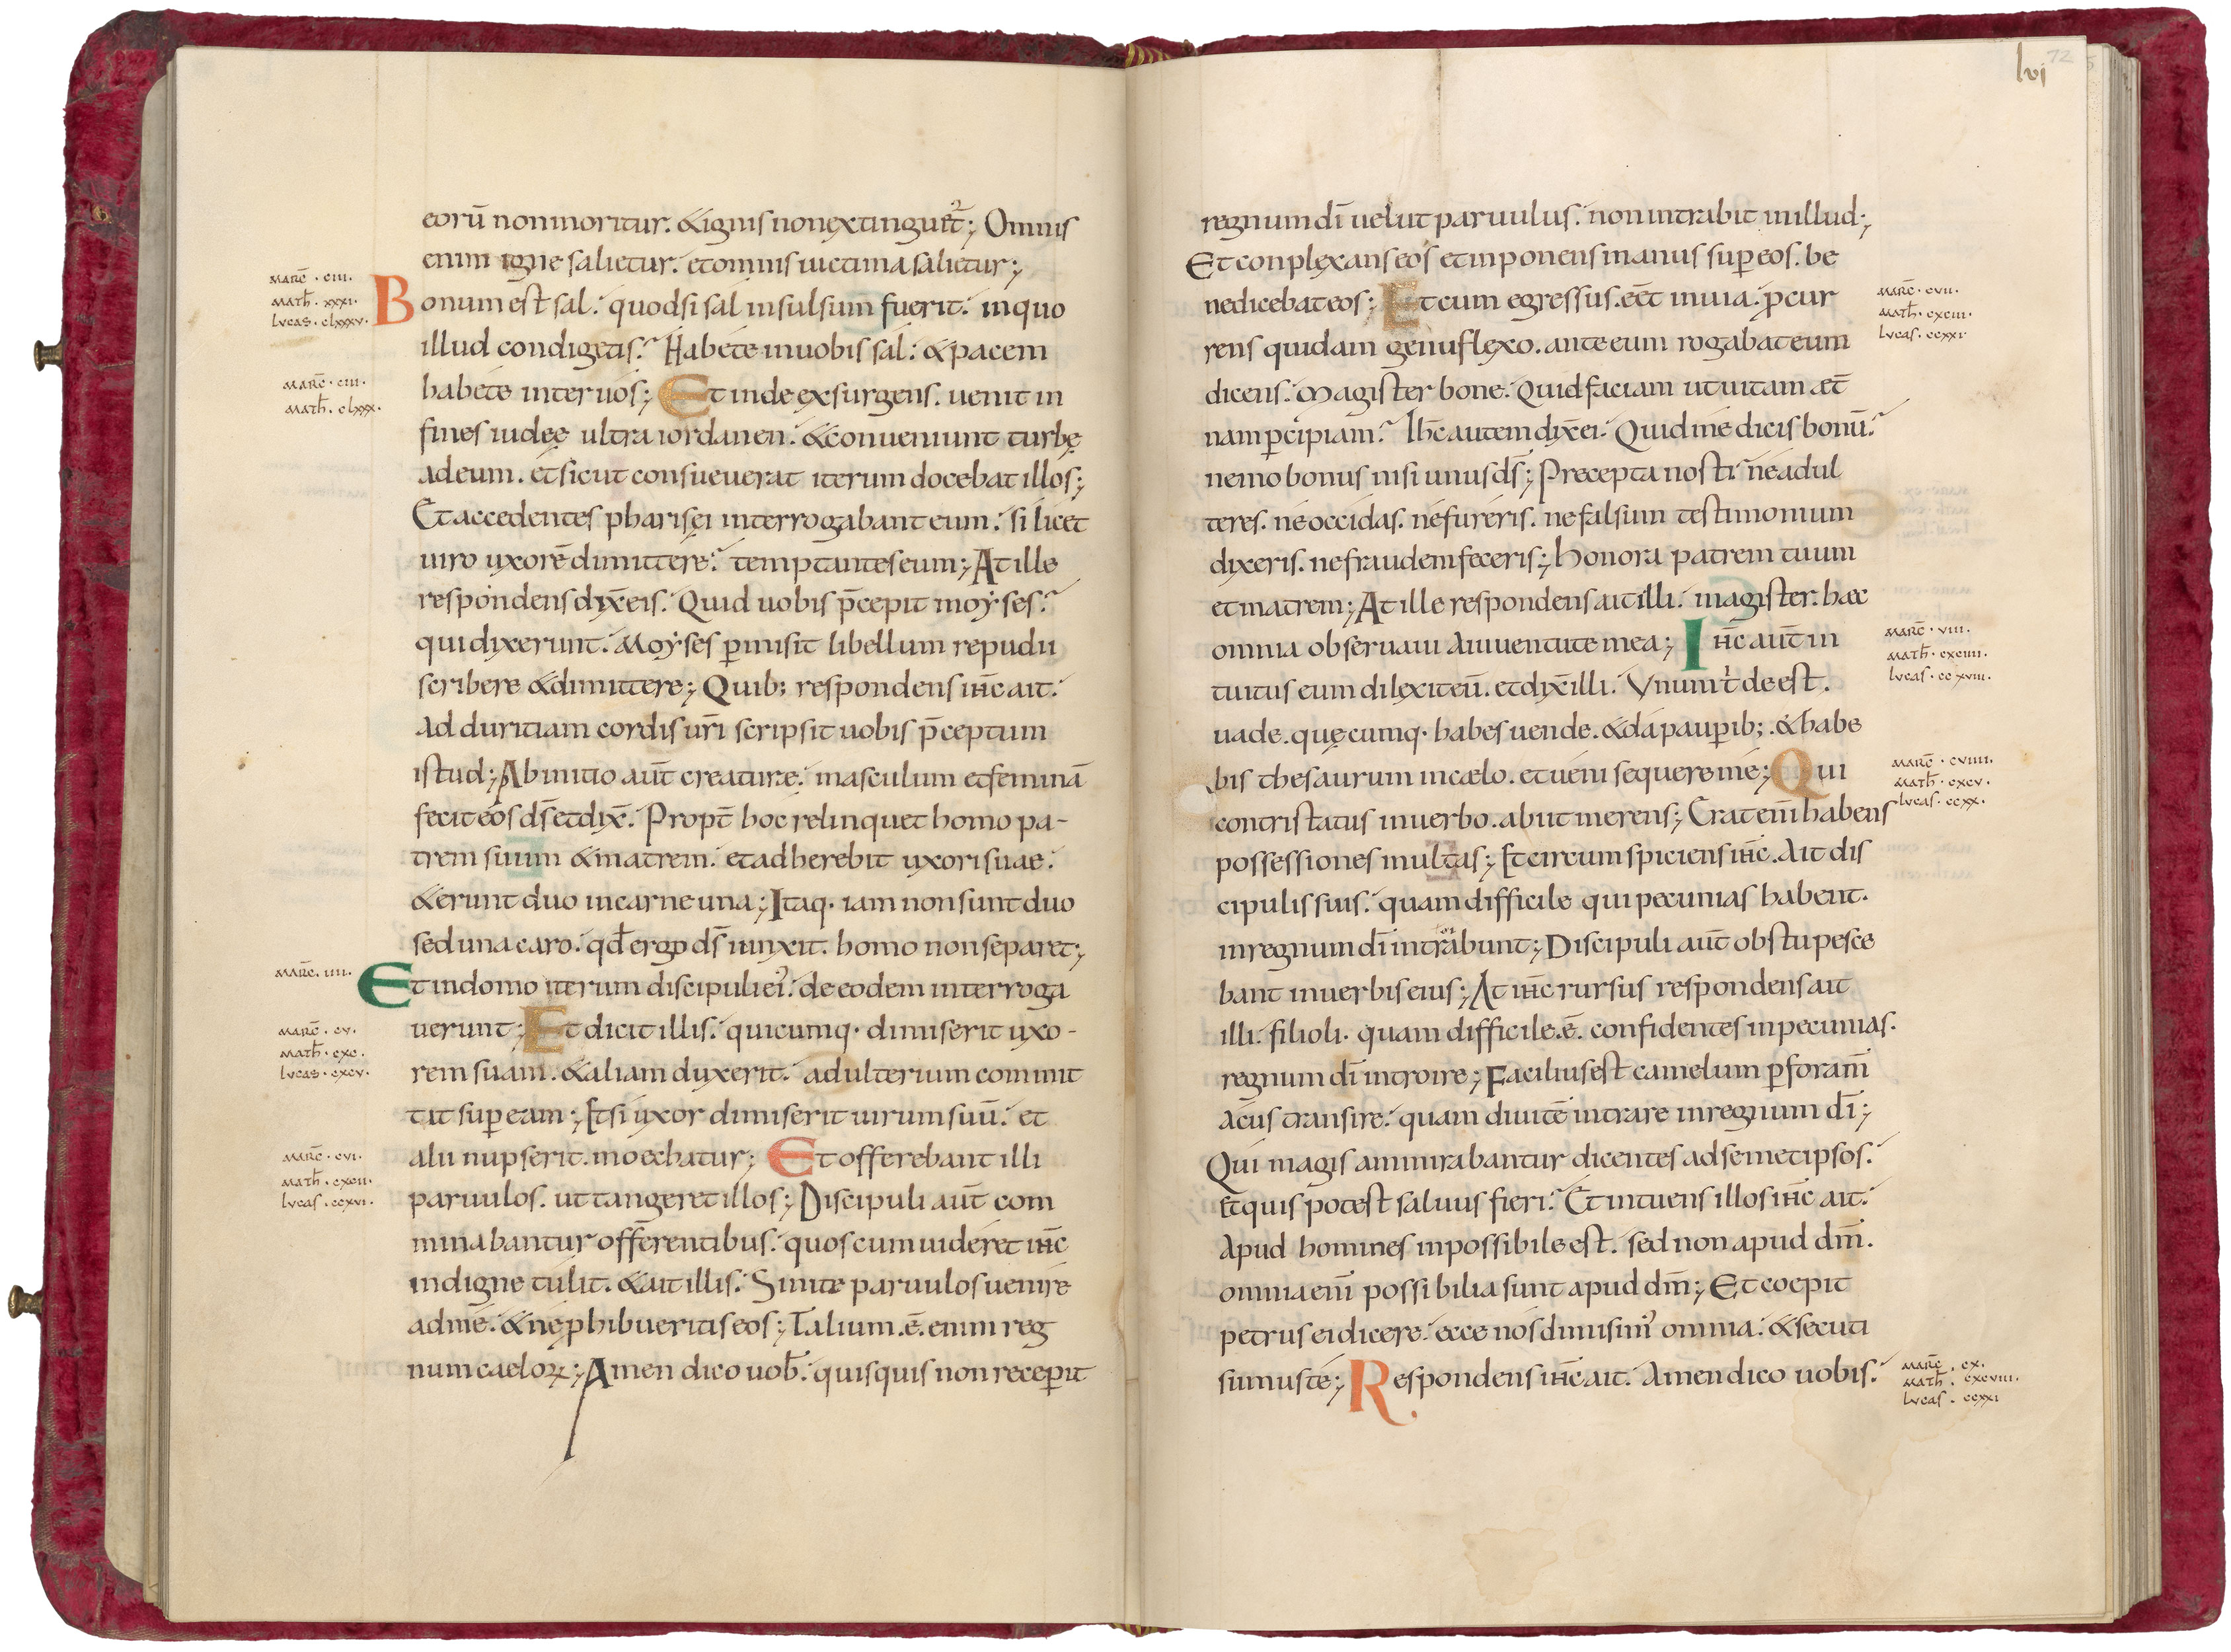 eorū non moritur. & ignis non extinguet̄; Omnis
enim igne salietur. et omnis uictima salietur;
MARC̄ . CIII.
MATH̄ . XXXI.
LVCAS . CLXXXV.
Bonum est sal. quodsi sal insulsum fuerit. in quo
illud condigetis. Habete in uobis sal. & pacem
MARC̄ . CIII.
MATH̄ . CLXXX.
habete inter uos; Et inde exsurgens. uenit in
fines iudeę ultra iordanen. & conueniunt turbę
ad eum. et sicut consueuerat iterum docebat illos;
Et accedentes pharisęi interrogabant eum. si licet
uiro uxorē dimittere. temptantes eum; At ille
respondens dix̄ eis. Quid uobis p̄cepit moyses.
qui dixerunt. Moyses ꝑmisit libellum repudii
scribere & dimittere; Quib; respondens ih̄c ait.
Ad duritiam cordis ur̄i scripsit uobis p̄ceptum
istud; Ab initio aūt creaturæ. masculum et feminā
fecit eos d̄s et dix̄. Propt̄ hoc relinquet homo pa-
trem suum & matrem. et adherebit uxori suae.
& erunt duo in carne una; Itaq. iam non sunt duo
sed una caro. qd̄ ergo d̄s iunxit. homo non separet;
MARC̄. IIII.
Et in domo iterum discipuli ei᾿. de eodem interroga
MARC̄ . CV.
MATH̄ . CXC.
LVCAS . CXCV.
uerunt; Et dicit illis. quicumq. dimiserit uxo-
rem suam. & aliam duxerit. adulterium commit
tit suꝑ eam; Et si uxor dimiserit uirum suū. et
MARC̄ . CVI.
MATH̄ . CXCII.
LVCAS . CCXVI.
alii nupserit. moechatur; Et offerebant illi
paruulos. ut tangeret illos; Discipuli aūt com
minabantur offerentibus. quos cum uideret ih̄c
indigne tulit. & ait illis. Sinite paruulos uenire
ad me. & ne ꝓhibueritis eos; Talium .ē. enim reg
num caeloꝝ; Amen dico uob̄. quisquis non receꝑit
lvj
72
regnum dī uelut paruulus. non intrabit in illud;
Et conplexans eos et inponens manus suꝑ eos. be
nedicebat eos; Et cum egressus. eēt in uia. ꝓcur
MARC̄ . CVII.
MATH̄ . CXCIII.
LVCAS . CCXXI
rens quidam genu flexo. ante eum rogabat eum
dicens. Magister bone. Quid faciam ut uitam æt̄
nam ꝑcipiam. Ih̄c autem dix̄ ei. Quid me dicis bonū.
nemo bonus nisi unus d̄s; Precepta nosti. ne adul
teres. ne occidas. ne fureris. ne falsum testimonium
dixeris. ne fraudem feceris; Honora patrem tuum
et matrem; At ille respondens ait illi. magister. hæc
omnia obseruaui a iuuentute mea; Ih̄c aūt in
MARC̄ . VIII.
MATH̄ . CXCIIII.
LVCAS . CCXVIII.
tuitus eum dilexit eū. et dix̄ illi. Vnum t̄ de est.
uade. quęcumq. habes uende. & da pauꝑib;. & habe
bis thesaurum in cælo. et ueni sequere me; Qui
MARC̄ . CVIIII.
MATH̄ . CXCV.
LVCAS . CCXX.
contristatus in uerbo. abiit merens; Erat enī habens
possessiones multas; Et circumspiciens ih̄c. Ait dis
cipulis suis. quam difficile qui pecunias habent.
in regnum dī intrabunt; Discipuli aūt obstupesce
bant in uerbis eius; At ih̄c rursus respondens ait
illi. filioli. quam difficile .ē. confidentes in pecunias.
regnum dī introire; Facilius est camelum ꝑ foram̄
acus transire. quam diuitē intrare in regnum dī;
Qui magis ammirabantur dicentes ad semetipsos.
Et quis potest saluus fieri. Et intuens illos ih̄c ait.
Apud homines inpossibile est. sed non apud dm̄.
omnia enī possibilia sunt apud dm̄; Et coepit
petrus ei dicere. ecce nos dimisim᾿ omnia. & secuti
sumus te; Respondens ih̄c ait. Amen dico uobis.
MARC̄ . CX.
MATH̄ . CXCVIII.
LVCAS . CCXXI